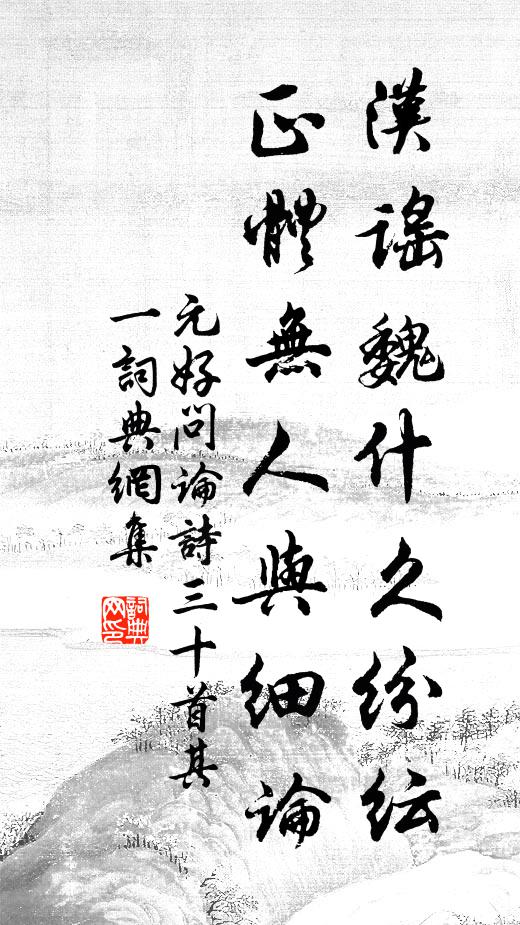 漢謠魏什久紛紜
正體無人與細論
元好問論詩三十首其
一詞典網集
詞典網印